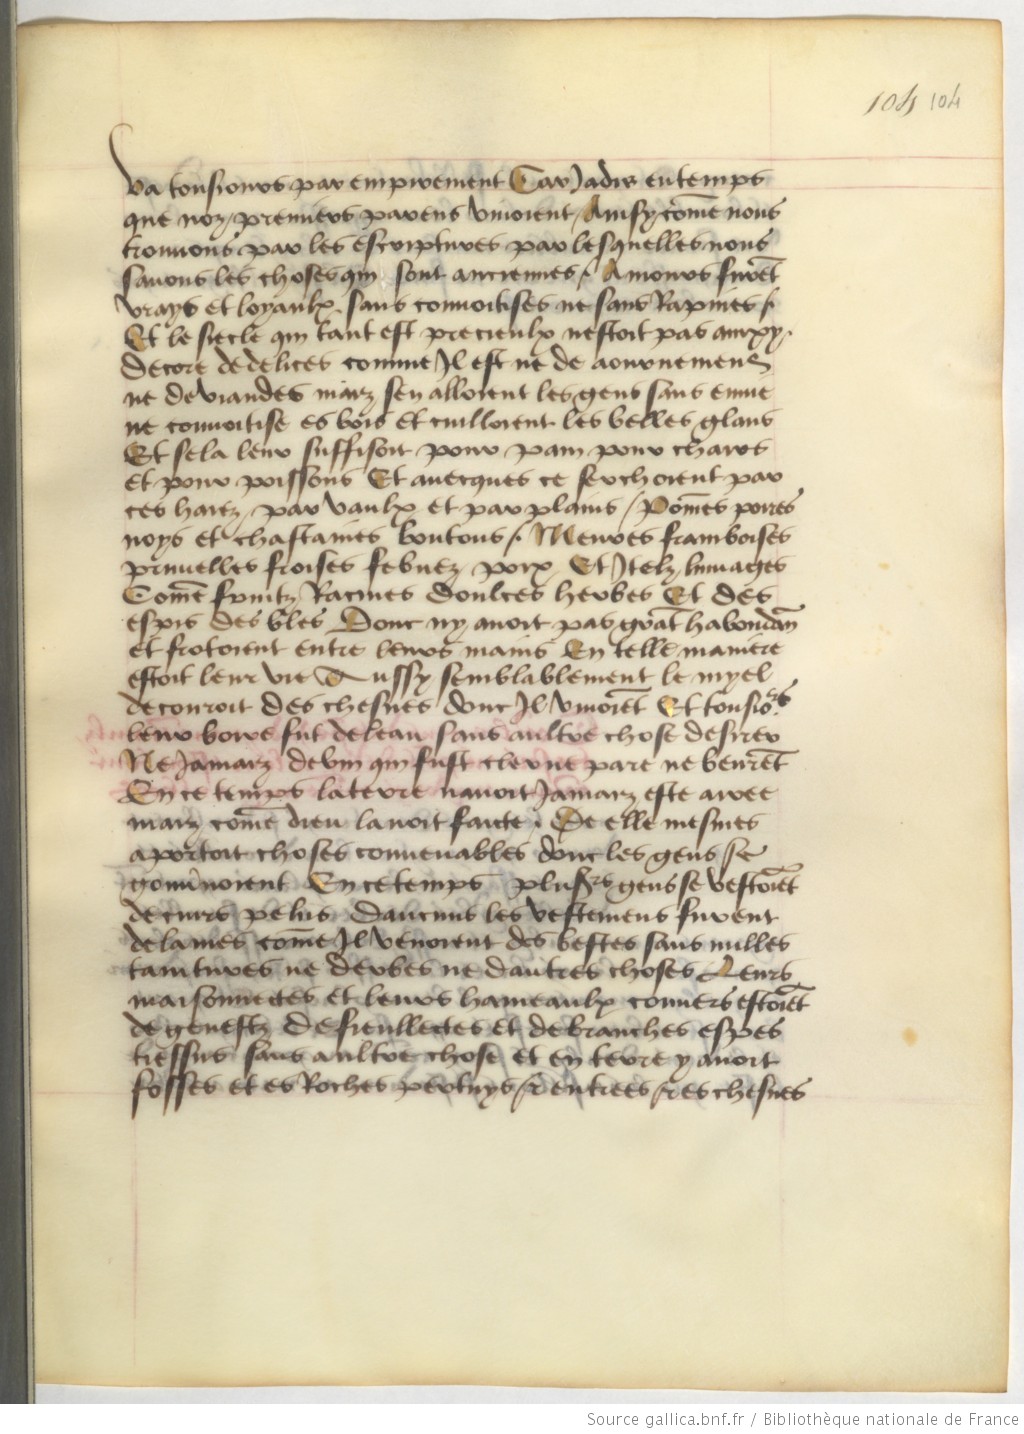 104 104
Va tousiours par empirement Car Jadis en temps
que noz premiers parens viuoient Ainsy cōme nous
trouuons par les escriptures par lesquelles nous
sauons les choses qui sont anciennes / Amours furēt
vrays et loyaulx sans conuoitises ne sans Rapines /
Et le siecle qui tant est precieulx nestoit pas
decore de delices comme Il est ne de aournemens
ne de viandes maiz sen alloient les gens sans enuie
ne conuoitise es bois et cuilloient les belles glans
Et sela leur suffisoit pour pain pour chars
et pour poissons Et auecques ce serchoient par
ces haiez par vaulx et par plains / Pōmes poires
noys et chastaines boutons / Meures framboises
prunelles froises febuez poix Et Itelz
Comē fruitz Racines doulces herbes Et des
espis des bles Donc ny auoit pas grāt habondāce
et frotoient entre leurs mains En telle maniere
estoit leur vie Aussy semblablement le myel
decouroit des chesnes donc Il viuoiēt Et tousiors
leur boire fut de leau sans aultre chose desirer
Ne Jamaiz de vin qui fust cler ne pare ne beurēt
En ce temps la terre nauoit Jamaiz este aree
maiz comē dieu lauoit faicte / De elle mesmes
aportoit choses conuenables donc les gens se
gouūnoient En ce temps plusrs gens se vestoiēt
de cuirs pelus Daucuns les vestemens furent
de laines comē Il venoient des bestes sans nulles
taintures ne derbes ne dautres choses Leurs
maisonnectes et leurs hameaulx couuers estoiēt
de genestz De fieullectes et de branches espes
tiessus sans aultre chose et en terre y auoit
fosses et es Roches pertuys / et entrees / es chesnes
Source gallica.bnf.fr / Bibliothèque nationale de France